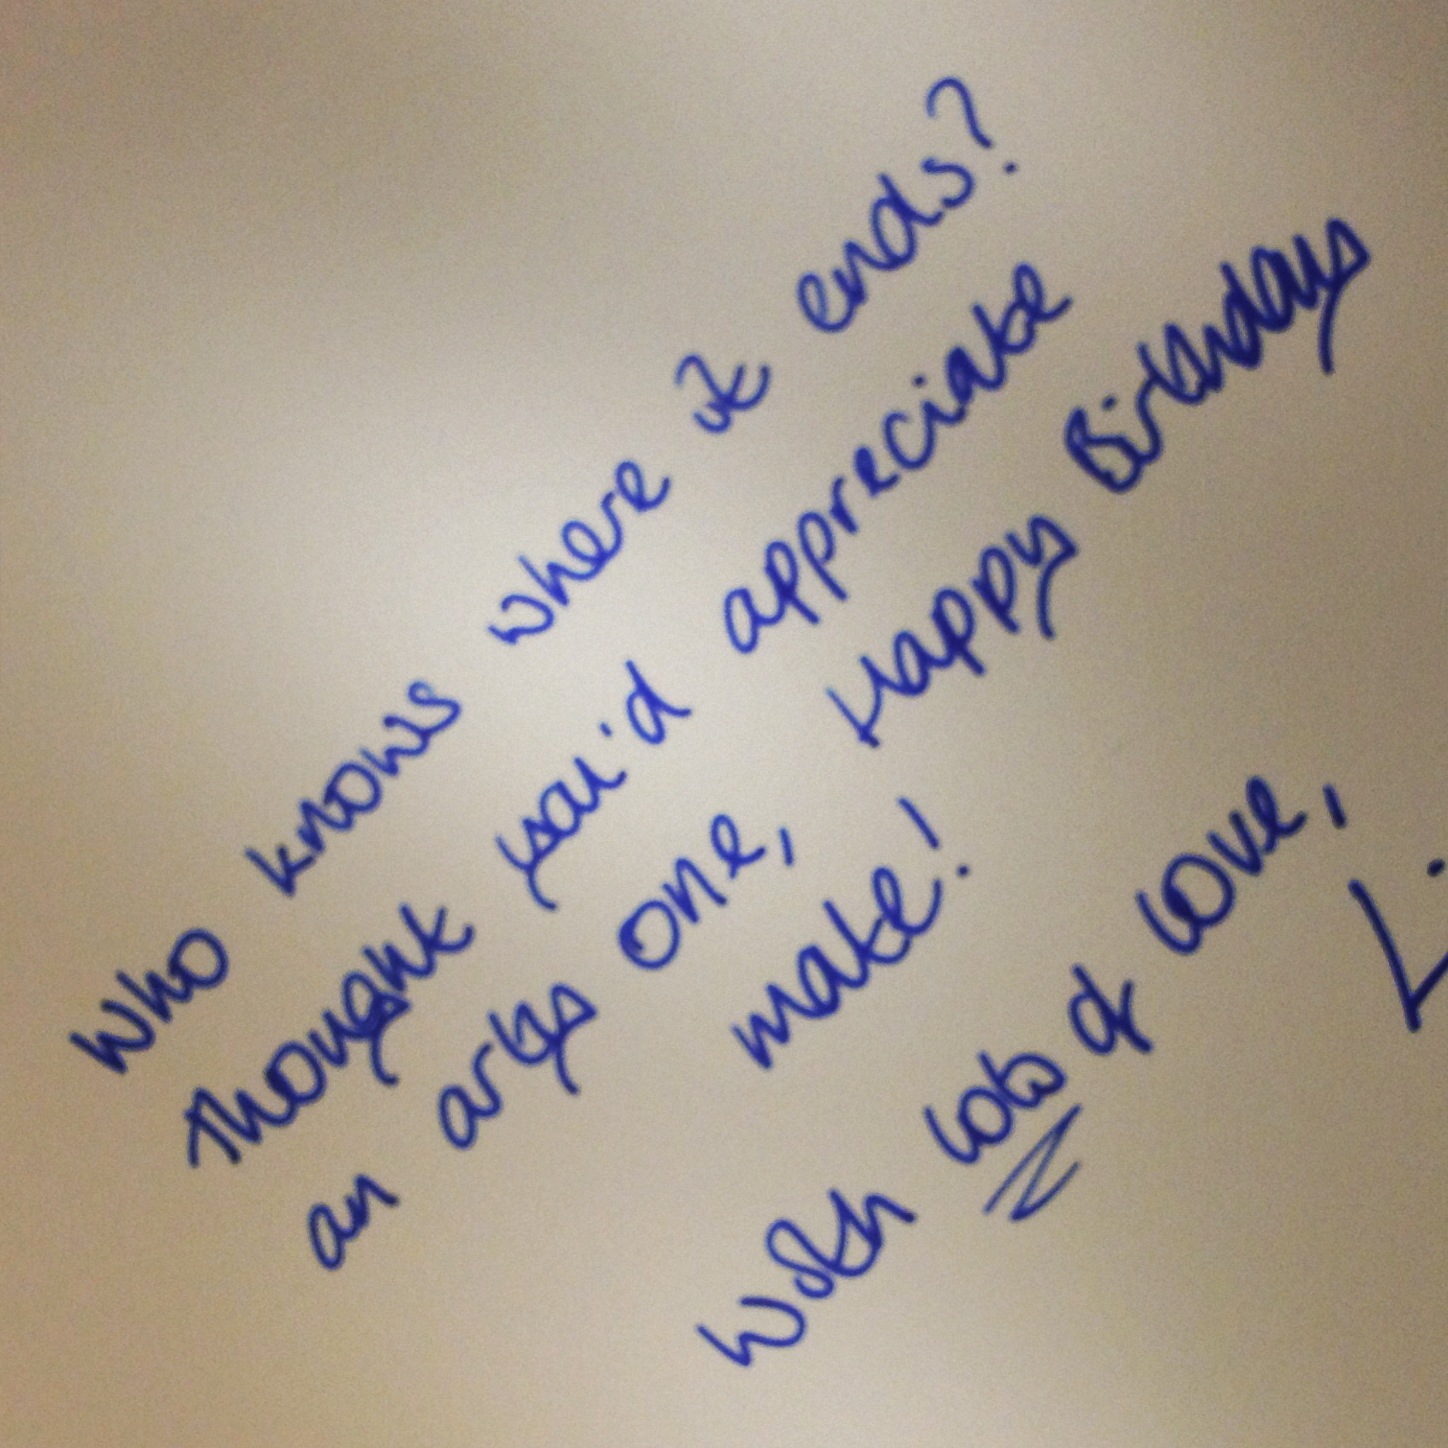 Who knows where it ends?
Thought you'd appreciate
an artys one, Happy Birthday
mate!
With lots of love,
Li